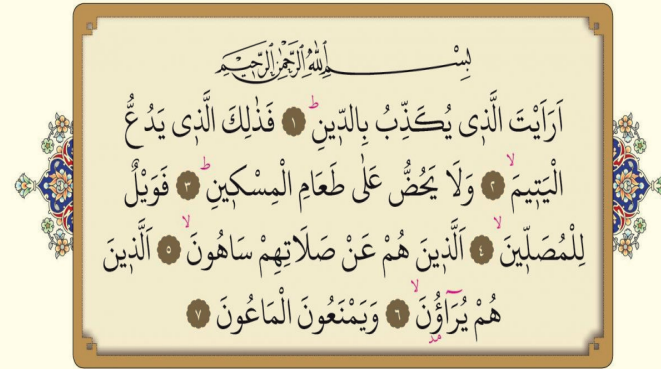 بِسْمِ اللّٰهِ الرَّحْمٰنِ الرَّحِيمِ
اَرَاَيْتَ الَّذٖى يُكَذِّبُ بِالدّٖينِؕ ﴿١﴾ فَذٰلِكَ الَّذٖى يَدُعُّ
الْيَتٖيمَۙ ﴿٢﴾ وَلَا يَحُضُّ عَلٰى طَعَامِ الْمِسْكٖينِؕ ﴿٣﴾ فَوَيْلٌ
لِلْمُصَلّٖينَۙ ﴿٤﴾ اَلَّذٖينَ هُمْ عَنْ صَلَاتِهِمْ سَاهُونَۙ ﴿٥﴾ اَلَّذٖينَ
هُمْ يُرَٓاؤُ۫نَۙ ﴿٦﴾ وَيَمْنَعُونَ الْمَاعُونَ ﴿٧﴾